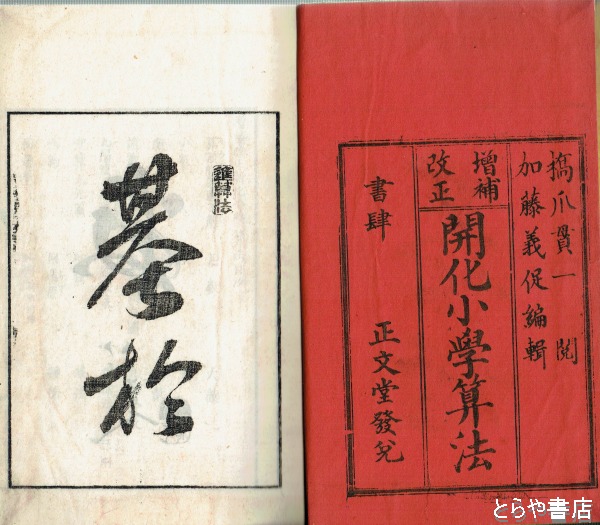 橋爪貫一閲
加藤義促編輯
増補
改正
開化小學算法
書肆
正文堂發兌
於
とらや書店